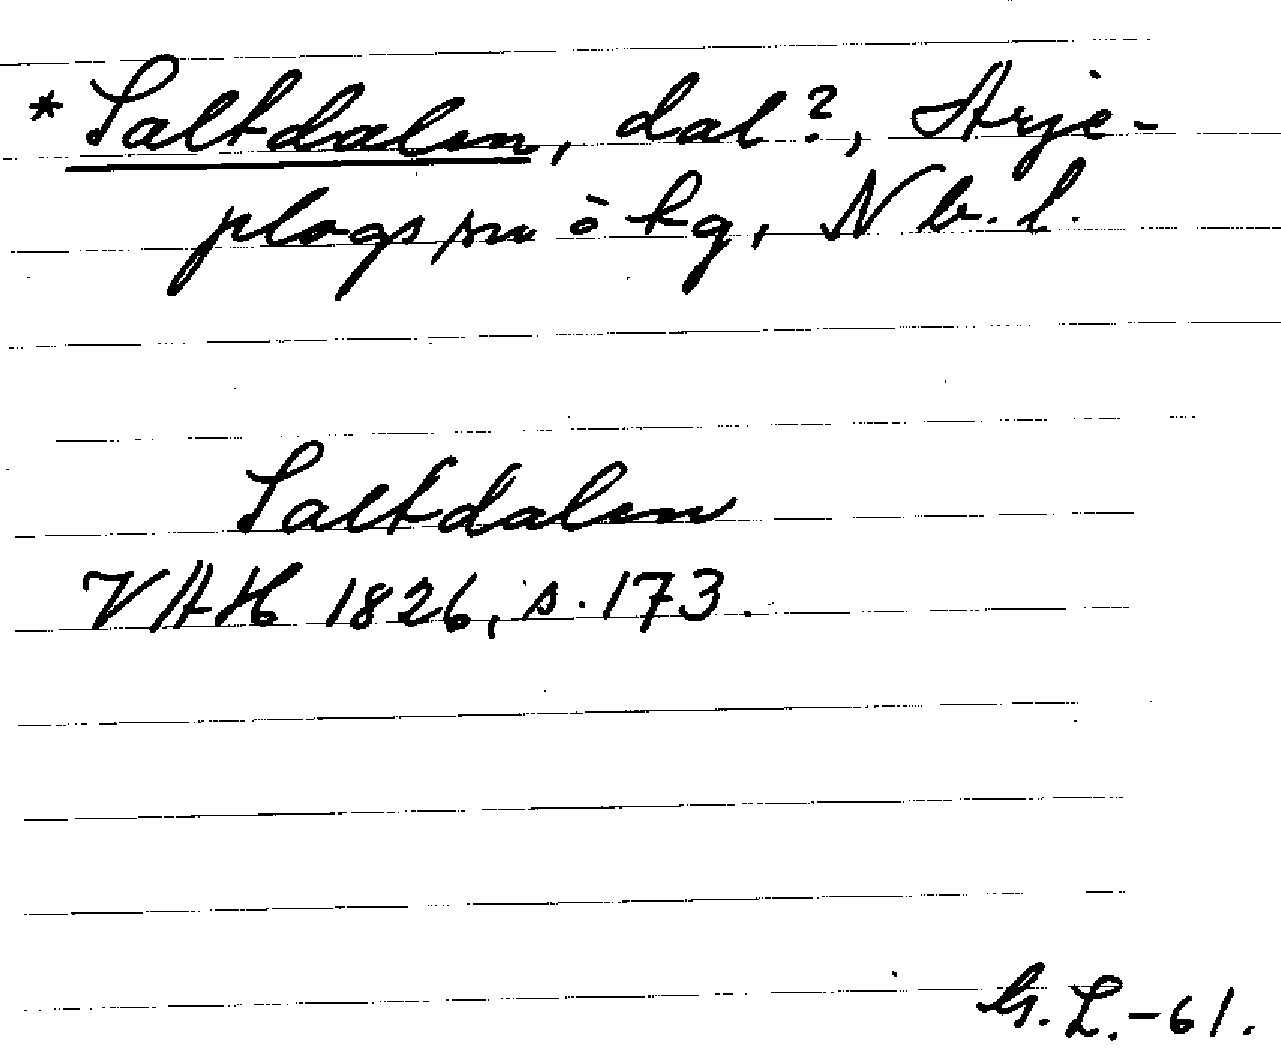 * Saltdalen, dal?, Arje-
plogs sn o kg, Nb. l.
Saltdalen
VAH 1826, s. 173.
G. L. -61.